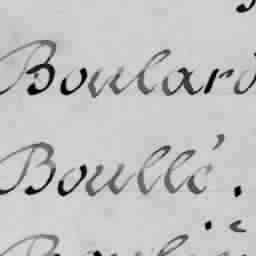 Boulard
Boullé.